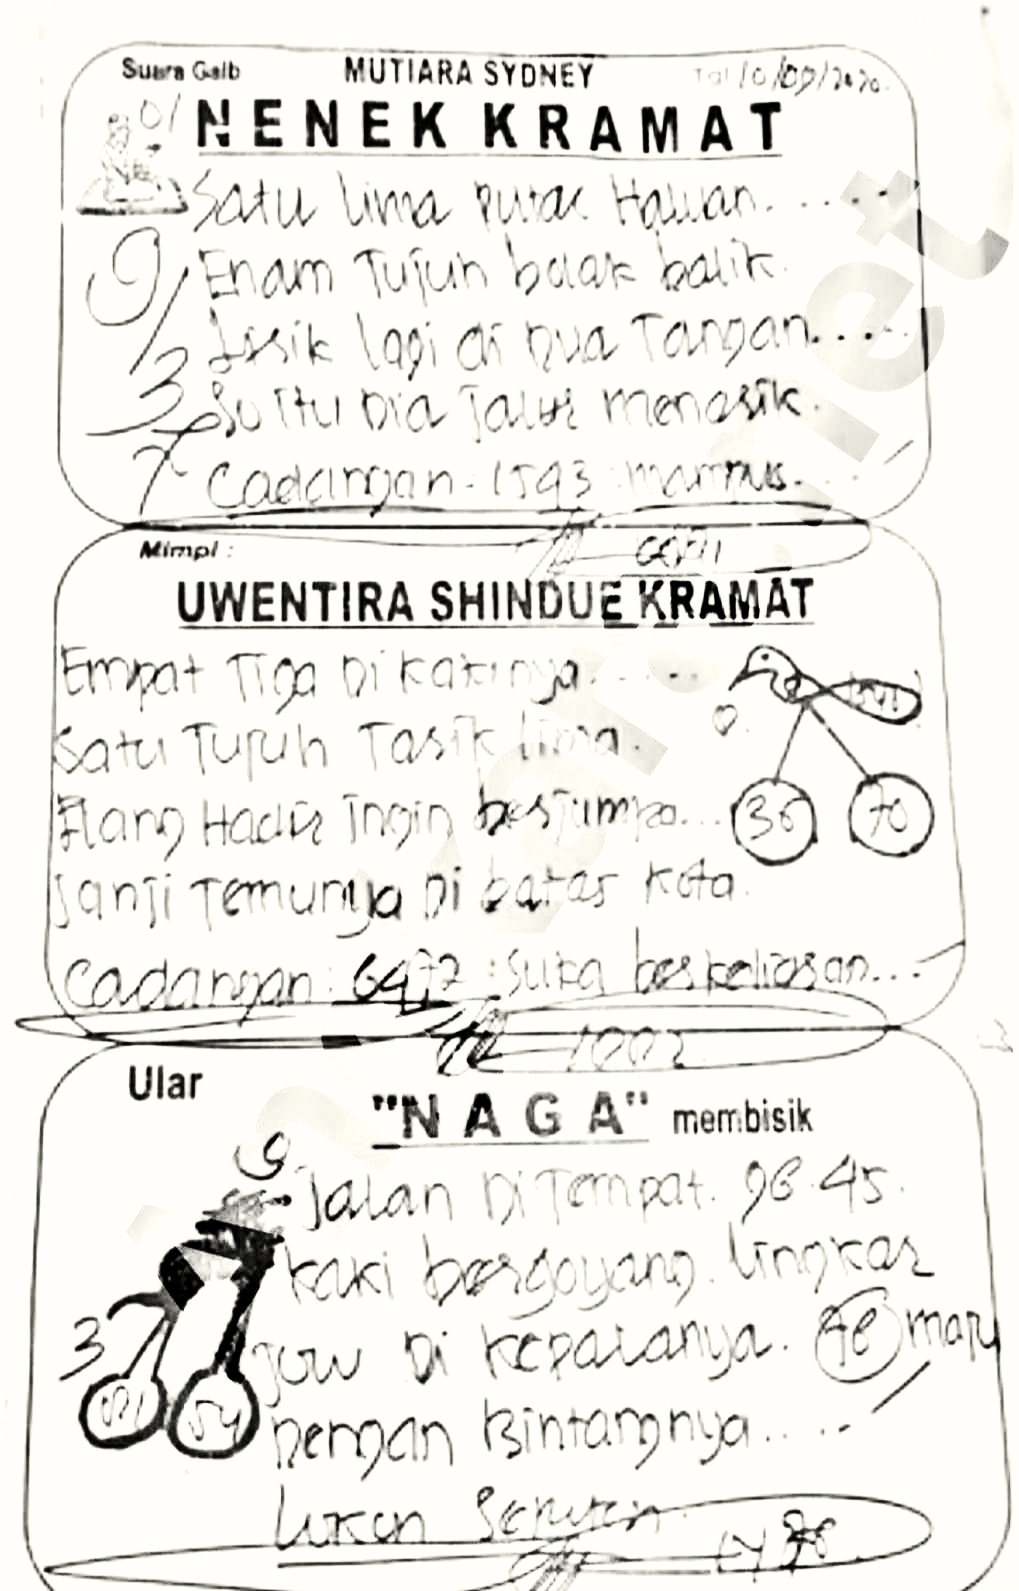 Suara Gaib MUTIARA SYDNEY Tgl 10/09/2020
NENEK KRAMAT
01
Satu lima putar Haluan.......
Enam Tujuh bolak balik.
9/3
lagi di Dua Tangan.....
itu Dia jalur menarik.
7
Cadangan: 1593 mampus....
Mimpi :
UWENTIRA SHINDUE KRAMAT
Empat Tiga Di kakinya......
Satu Tujuh Tasik lima.
Elang Hadir ingin berjumpa...
36 70
Janji Temunya Di batas kota.
Cadangan: 6472 : Suka berkeliaran...
1002
Ular "NAGA" membisik
9
Jalan Di Tempat. 96.45.
kaki bergoyang. lingkar
3
Di kepalanya. 46 maju
54
Dengan Bintangnya.....